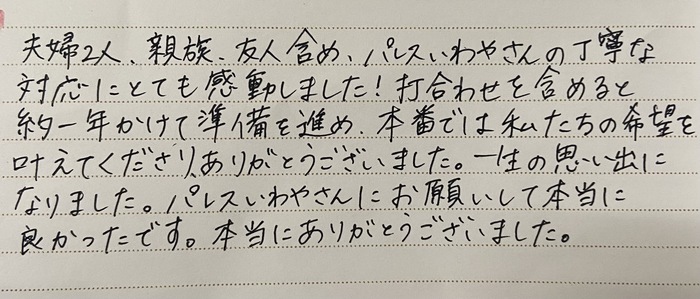 夫婦2人、親族、友人含め、パレスいわやさんの丁寧な
対応にとても感動しました!打合わせを含めると
約一年かけて準備を進め、本番では私たちの希望を
叶えてくださり、ありがとうございました。一生の思い出に
なりました。パレスいわやさんにお願いして本当に
良かったです。本当にありがとうございました。